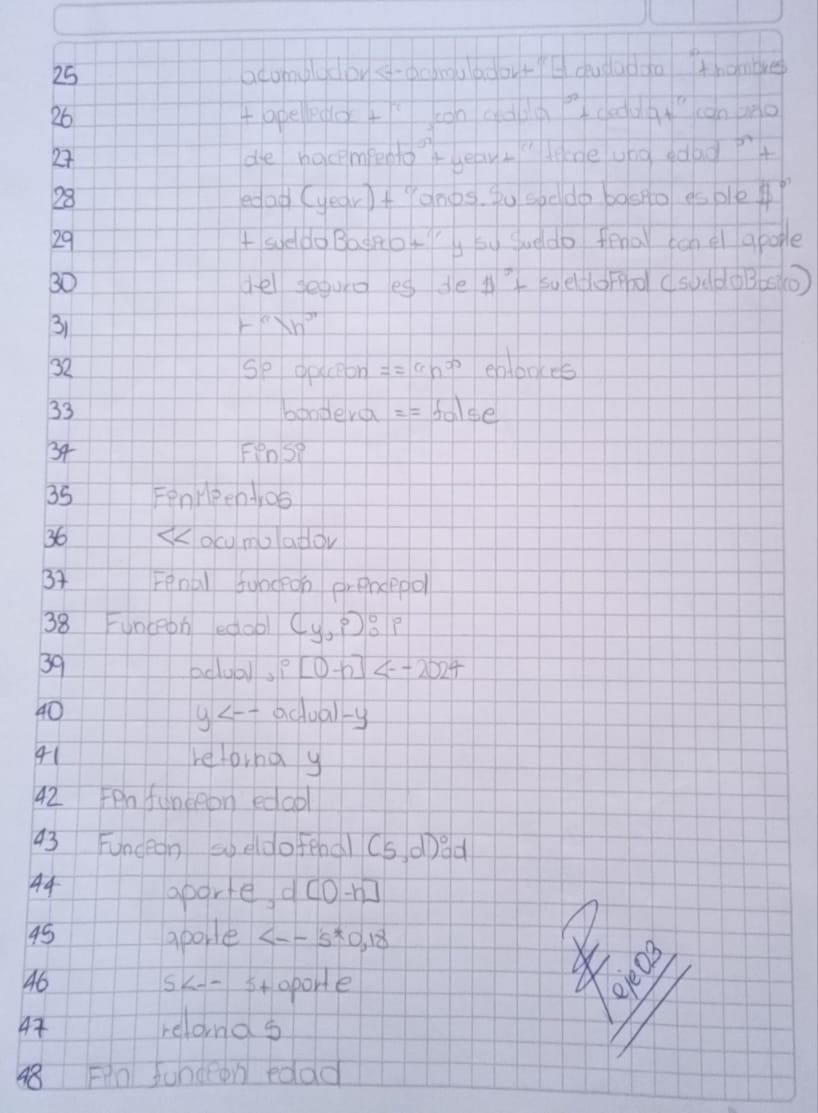 25 acomulador <-- acomulador + "El ciudadano " + nombres
26 + apellidos + " con cedula " + cedula + " con ano
27 de nacimiento " + year + " tiene una edad " +
28 edad (year) + "anos. Su sueldo basico es de $"
29 + sueldoBasico + " y su sueldo final con el aporte
30 del seguro es de $ " + sueldoFinal (sueldoBasico)
31 + "\n"
32 Si opccion == "n" entonces
33 bandera == false
34 Fin Si
35 FinMientras
36 << acumulador
37 Final funcion principal
38 Funcion edad (y, i): i
39 actual, i [0-n] <-- 2024
40 y <-- actual-y
41 retorna y
42 Fin funcion edad
43 Funcion sueldofinal (s, d): d
44 aporte, d [0-n]
45 aporte <-- s*0,18
46 s <-- s + aporte
47 retorna s
48 Fin funcion edad
eje03